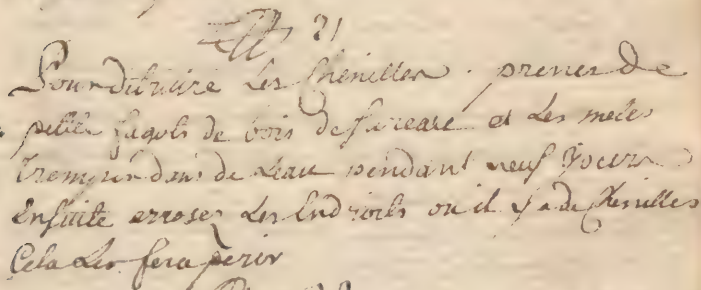 21
Pour détruire Les Chenilles. prenez de
petits fagots de bois de sureau et Les mettez
Tremper dans de Leau pendant neuf jours
Ensuite arrosez Les Endroits ou il y a de Chenilles
Cela Les fera perir